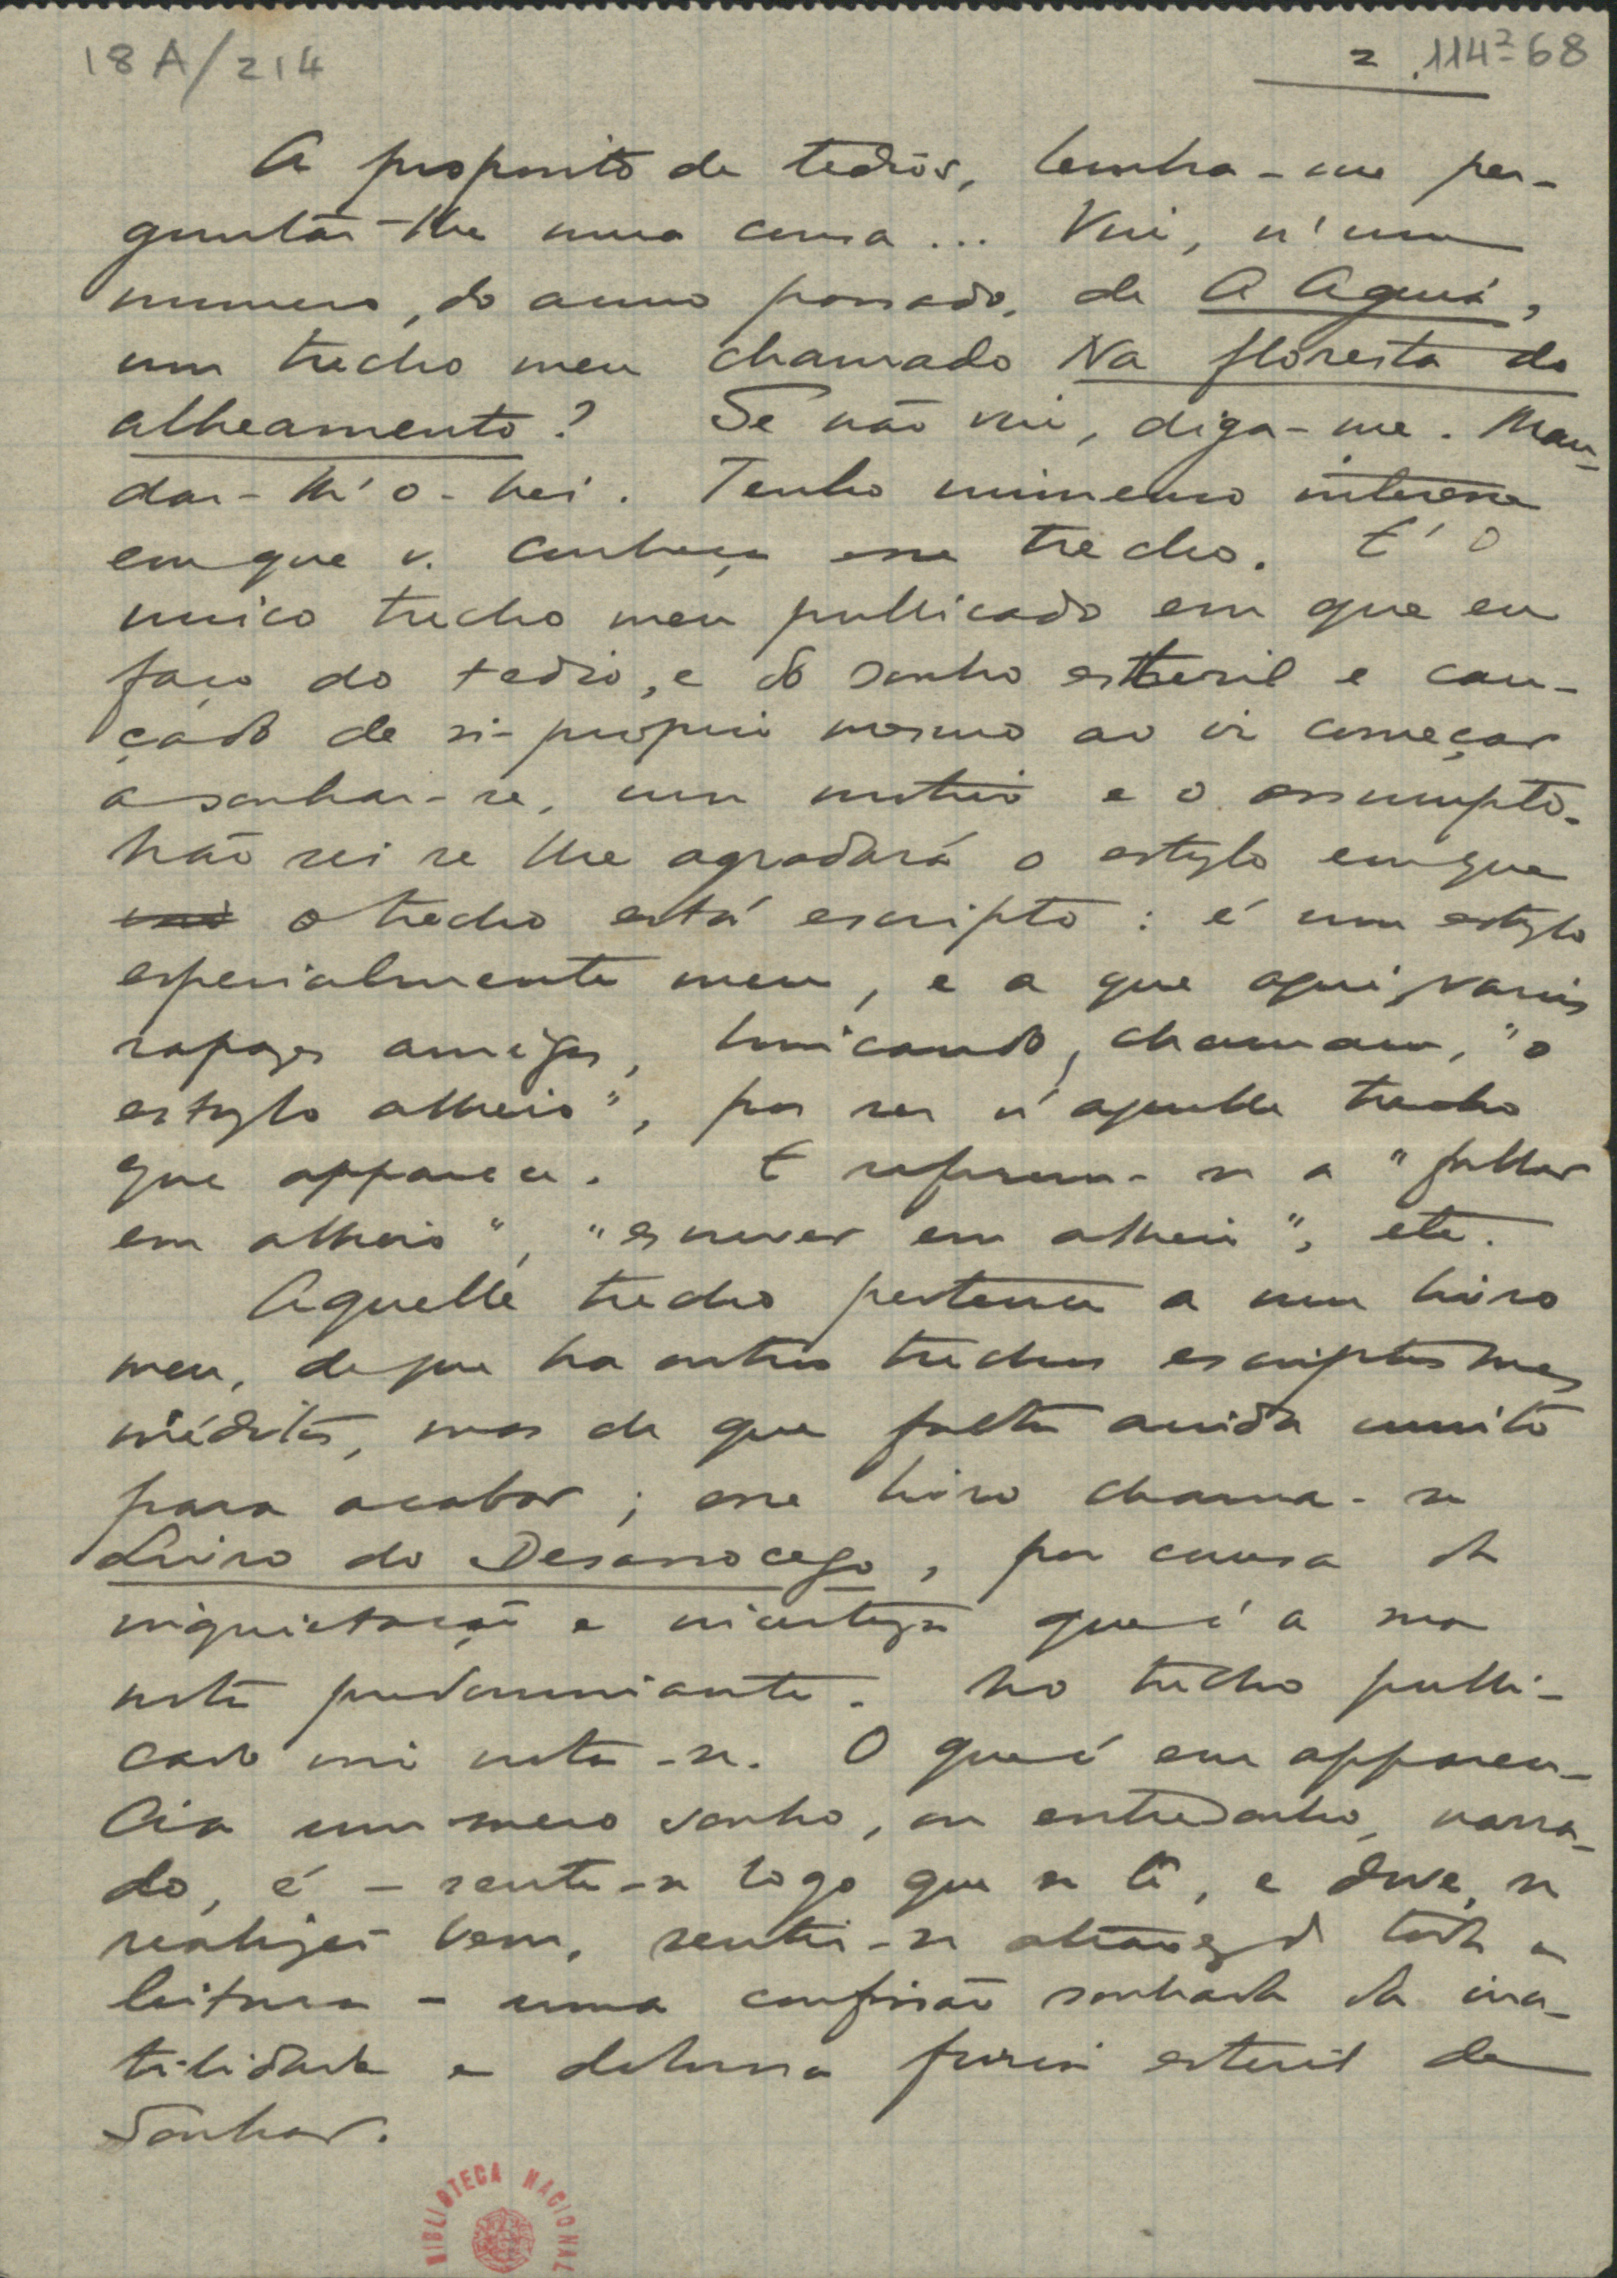 18A/214
2 114²-68
A proposito de tedios, lembra-me per-
guntar-lhe uma cousa... Viu, n'um
numero, do anno passado, de A Aguia,
um trecho meu chamado Na floresta do
alheamento? Se não viu, diga-me. Man-
dar-lh'o-hei. Tenho immenso interesse
em que v. conheça esse trecho. E' o
unico trecho meu publicado em que eu
faço do tedio, e do sonho esteril e can-
çado de si-proprio mesmo ao ir começar
a sonhar-se, um motivo e o assumpto.
Não sei se lhe agradará o estylo em que
o trecho está escripto: é um estylo
especialmente meu, e a que aqui varios
rapazes amigos, brincando, chamam, "o
estylo alheio", por ser n'aquelle trecho
que appareceu. E referem-se a "fallar
em alheio", "escrever em alheio", etc.
Aquelle trecho pertence a um livro
meu, de que ha outros trechos escriptos mas
inéditos, mas de que falta ainda muito
para acabar; esse livro chama-se
Livro do Desassocego, por causa da
inquietação e incerteza que é a sua
nota predominante. No trecho publi-
cado isso nota-se. O que é em apparen-
cia um mero sonho, ou entresonho, narra-
do, é — sente-se logo que se lê, e deve, se
realizei bem, sentir-se atravez de toda a
leitura — uma confissão sonhada da inu-
tilidade e dolorosa furia esteril de
sonhar.
BIBLIOTECA NACIONAL